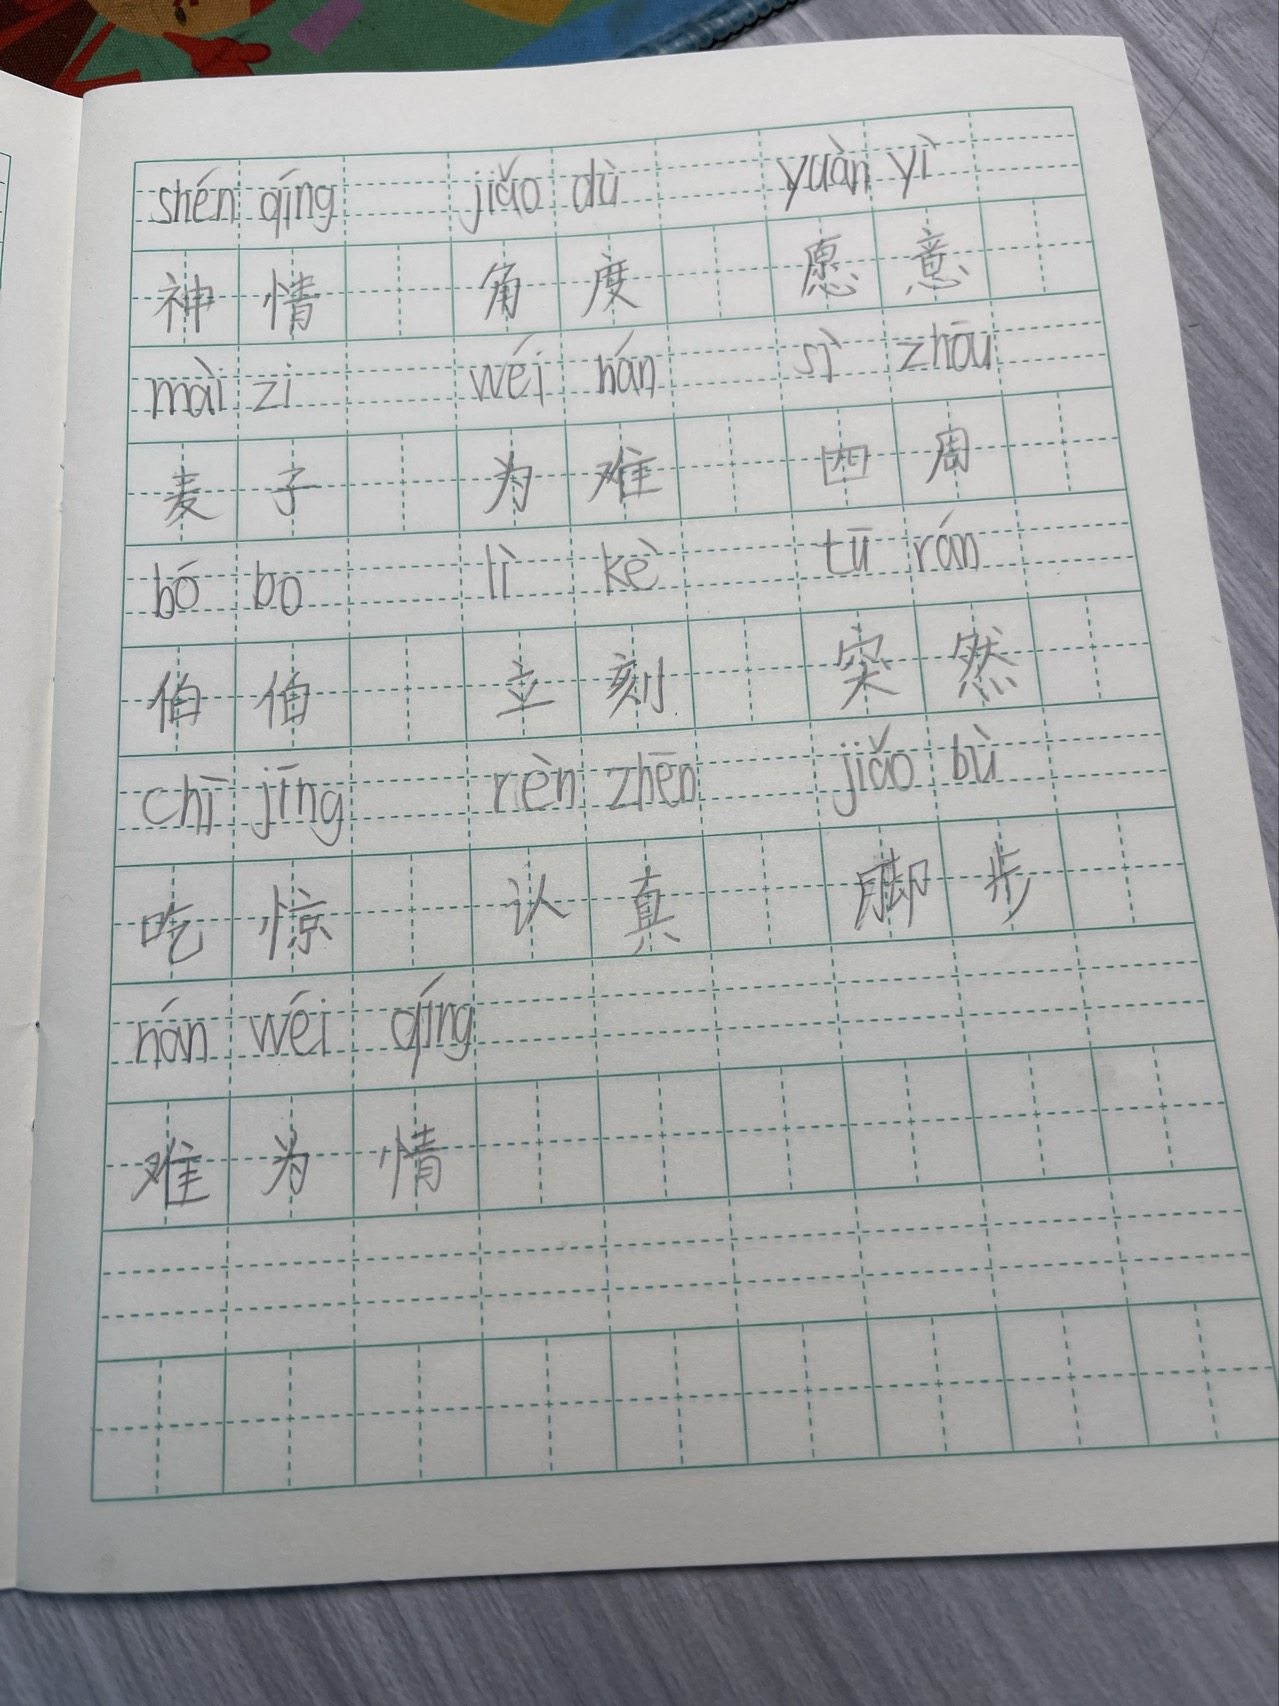 shén qíng jiǎo dù yuàn yì
神情 角度 愿意
mài zi wéi nán sì zhōu
麦子 为难 四周
bó bo lì kè tū rán
伯伯 立刻 突然
chī jīng rèn zhēn jiǎo bù
吃惊 认真 脚步
nán wéi qíng
难为情